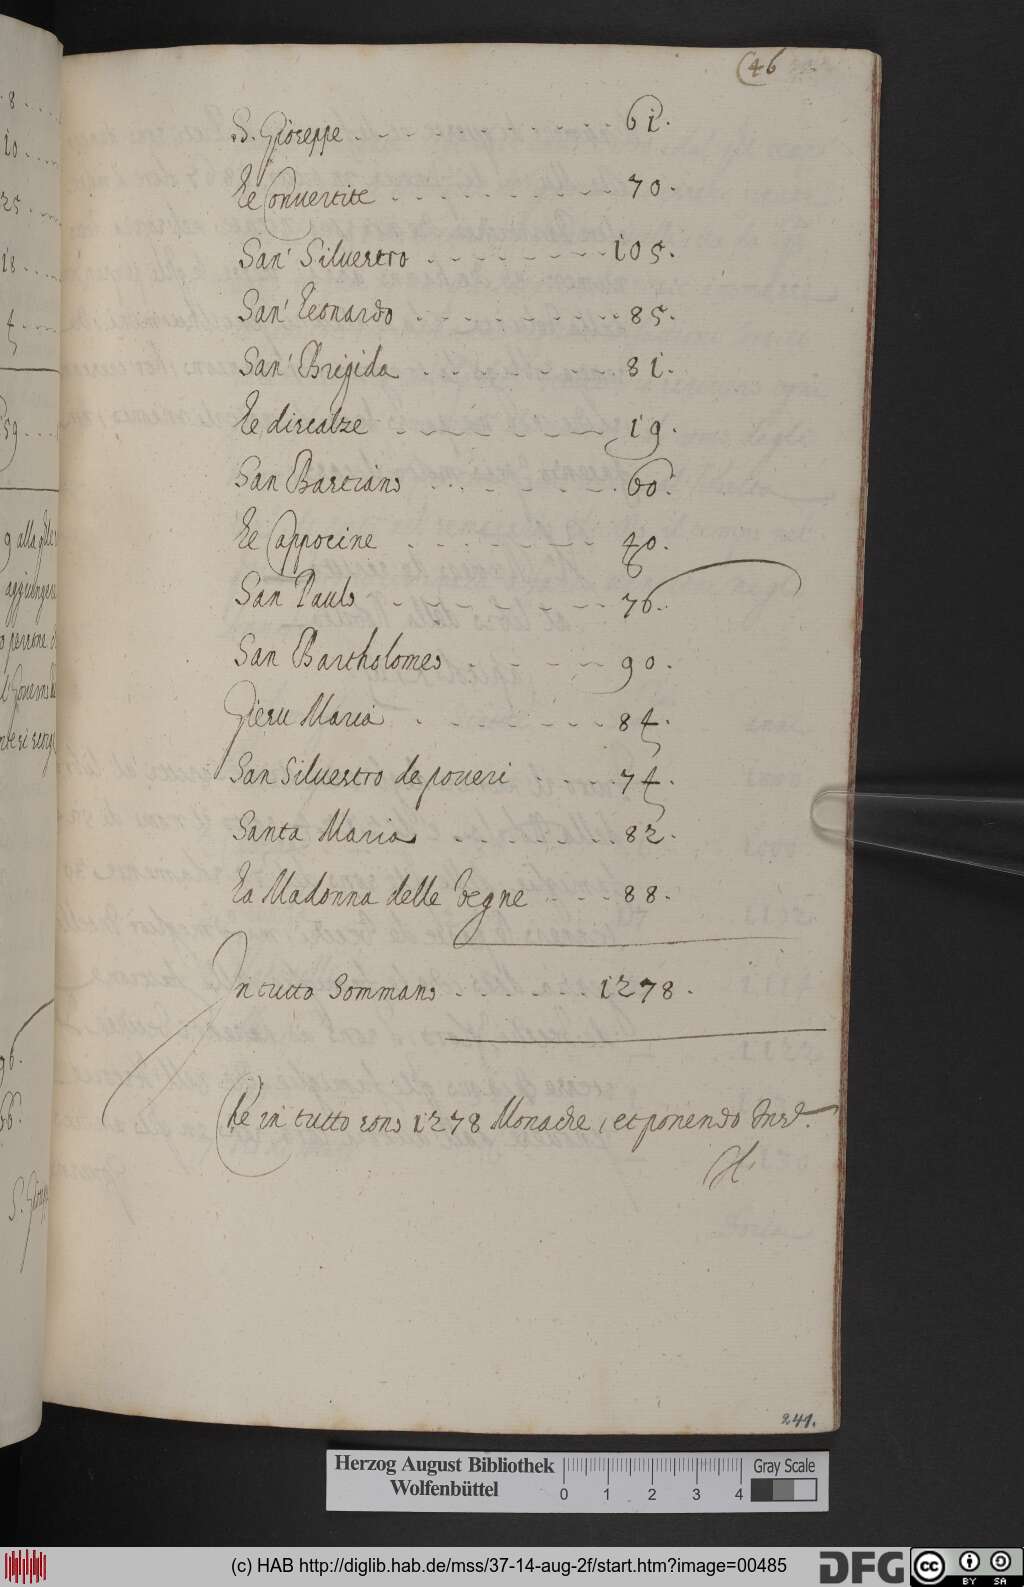 (46
S. Gioseppe 61.
Le Conuertite 70.
San' Siluestro 105.
San' Leonardo 85.
San' Brigida 81.
Le discalze 19.
San Bastiano 60.
Le Cappocine 40.
San Paulo 76.
San Bartholomeo 90.
Giesu Maria 84.
San Siluestro de poueri 74.
Santa Maria 82.
La Madonna delle Vegne 88.
In tutto Sommano 1278.
Che in tutto sono 1278 Monache, et ponendo
241.
8
10
25
18
4
59
9 alla
96.
66.
Herzog August Bibliothek
Wolfenbüttel
0 1 2 3 4
Gray Scale
(c) HAB http://diglib.hab.de/mss/37-14-aug-2f/start.htm?image=00485
DFG
cc BY SA